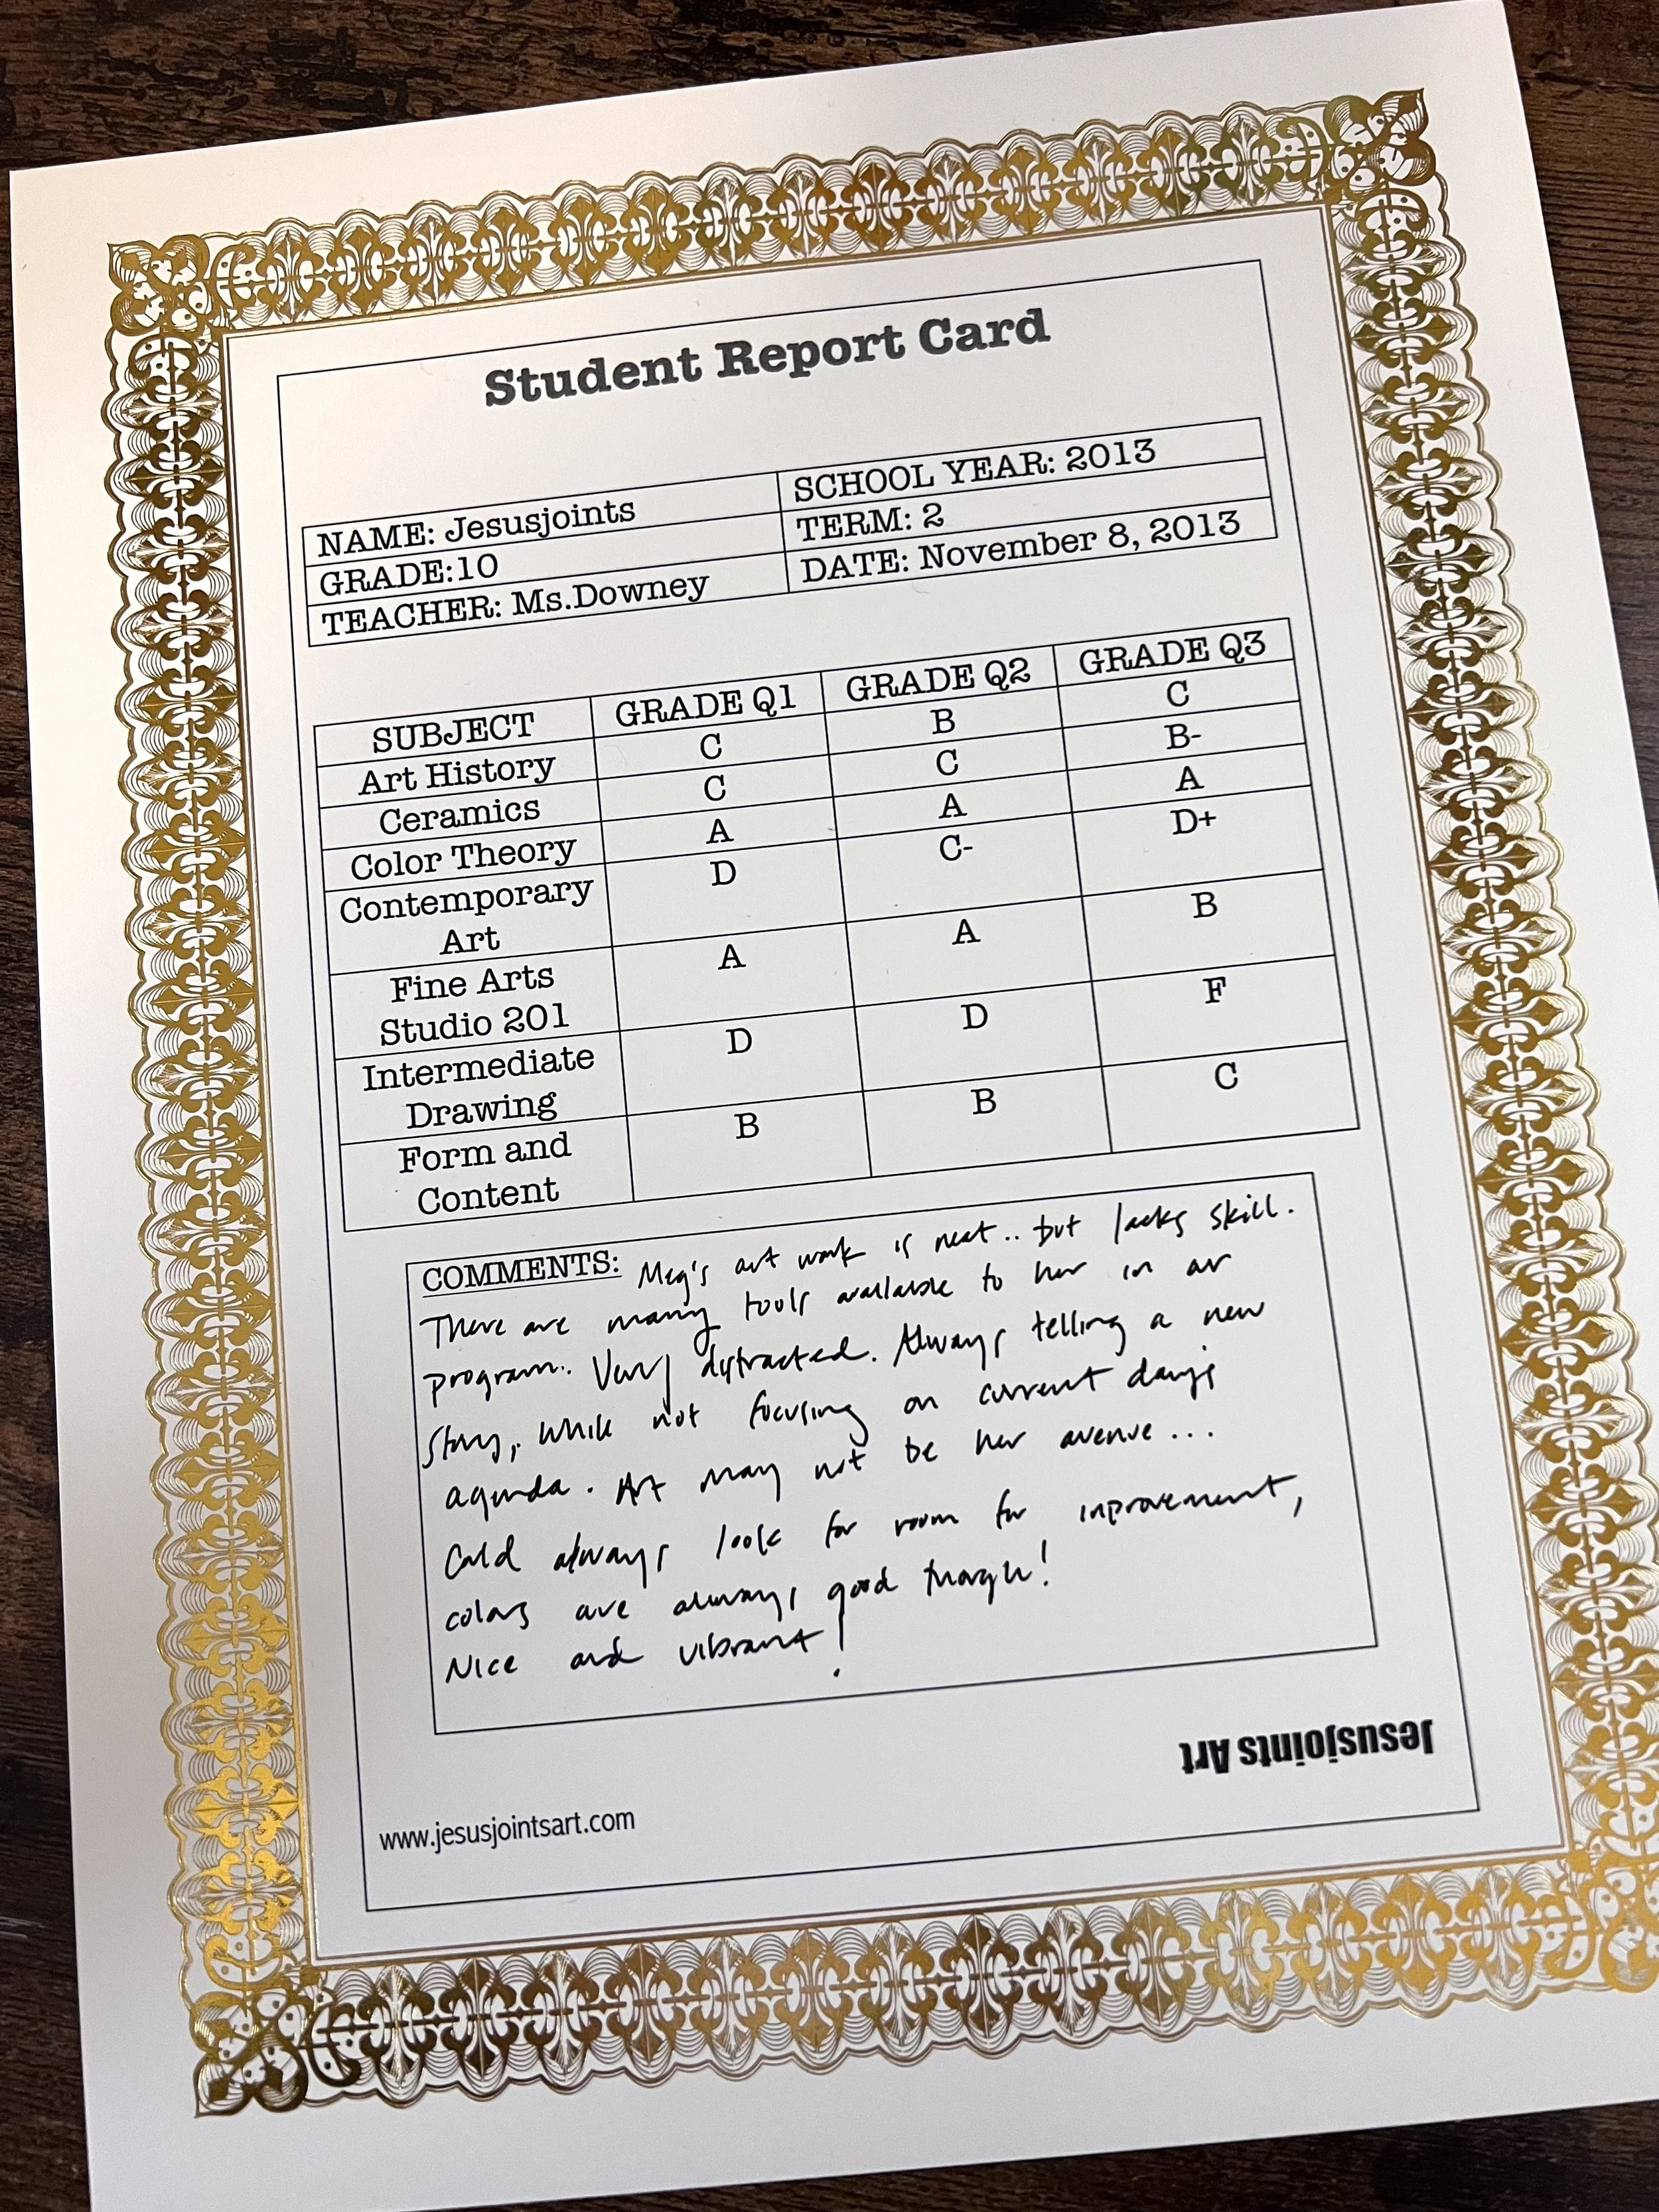 Student Report Card
NAME: Jesusjoints SCHOOL YEAR: 2013
GRADE:10 TERM: 2
TEACHER: Ms.Downey DATE: November 8, 2013
SUBJECT GRADE Q1 GRADE Q2 GRADE Q3
Art History C B C
Ceramics C C B-
Color Theory A A A
Contemporary D C- D+
Art
Fine Arts A A B
Studio 201
Intermediate D D F
Drawing
Form and B B C
Content
COMMENTS: Meg's art work is neat.. but lacks skill.
There are many tools available to her in our
program. Very distracted. Always telling a new
story, while not focusing on current day's
agenda. Art may not be her avenue...
Could always look for room for inprovement,
colors are always good though!
Nice and vibrant!
Jesusjoints Art
www.jesusjointsart.com